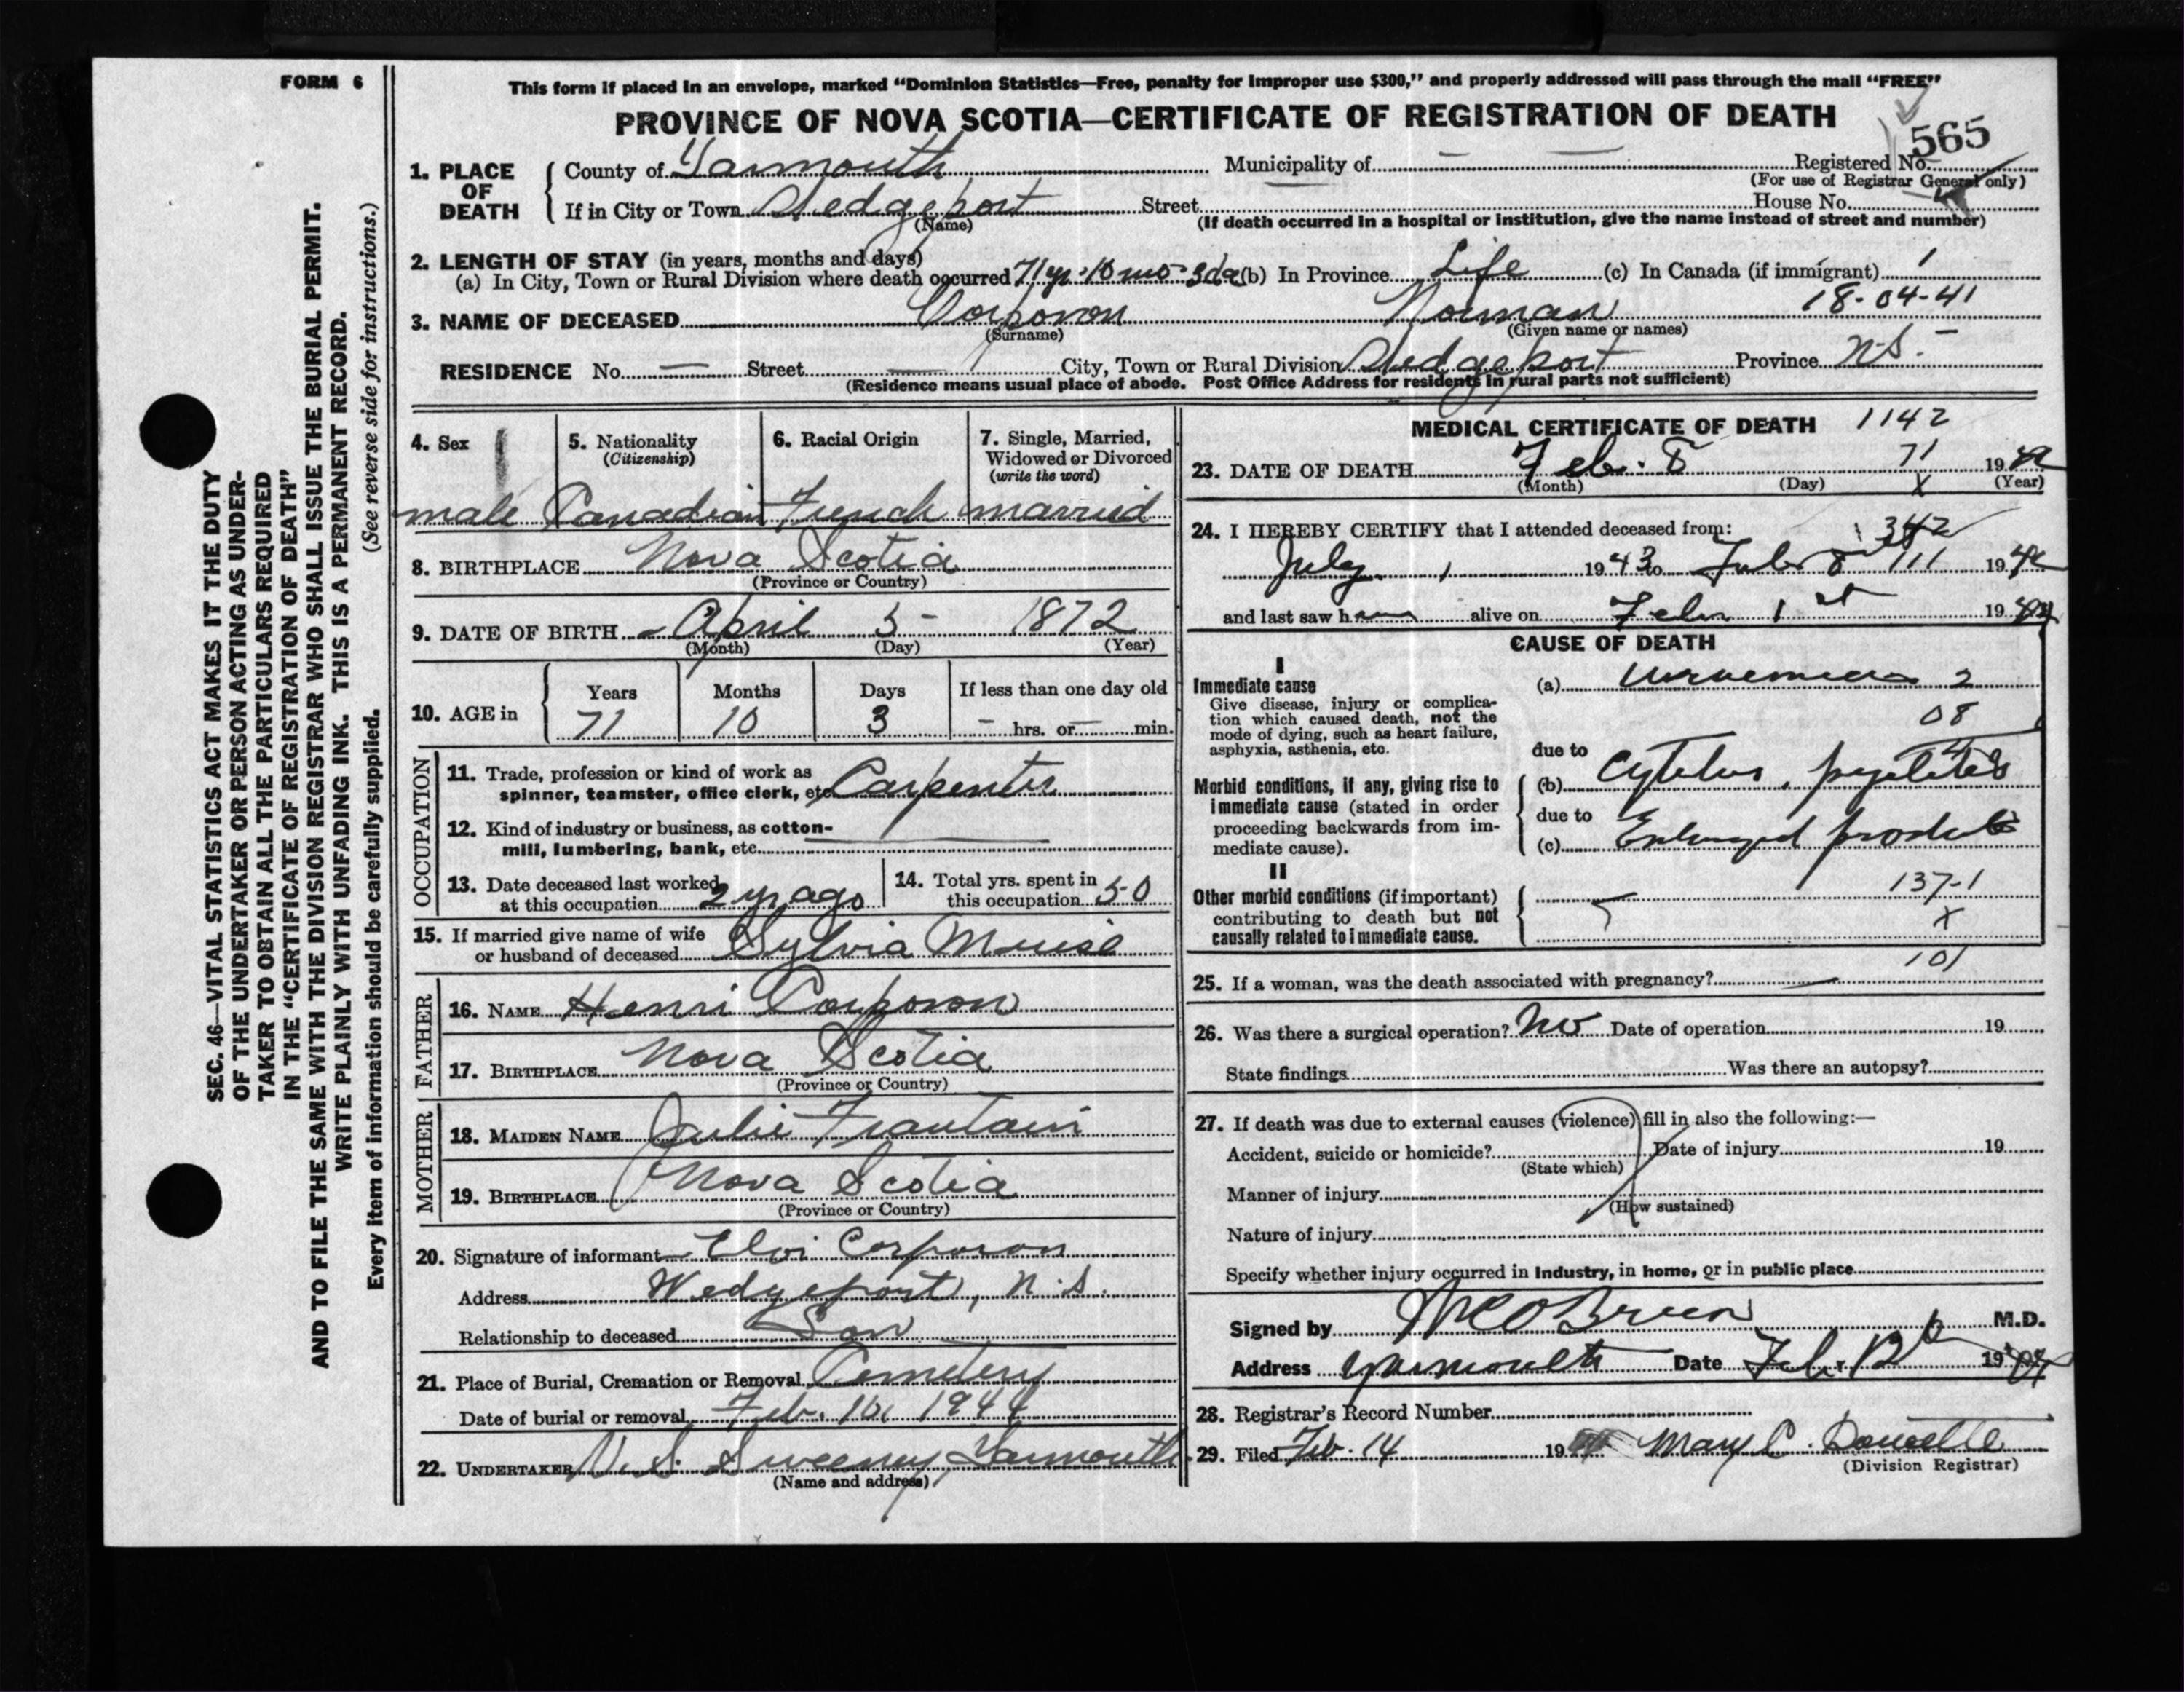 FORM 6
This form if placed in an envelope, marked “Dominion Statistics—Free, penalty for improper use $300,” and properly addressed will pass through the mail “FREE”
PROVINCE OF NOVA SCOTIA—CERTIFICATE OF REGISTRATION OF DEATH
565
1. PLACE OF DEATH
County of Yarmouth Municipality of — — Registered No.
(For use of Registrar General only)
If in City or Town Wedgeport Street House No.
(Name) (If death occurred in a hospital or institution, give the name instead of street and number)
2. LENGTH OF STAY (in years, months and days)
(a) In City, Town or Rural Division where death occurred 71 yr. 10 mo. 3 da (b) In Province Life (c) In Canada (if immigrant)
18-04-41
3. NAME OF DECEASED Corporon Norman
(Surname) (Given name or names)
RESIDENCE No. — Street — City, Town or Rural Division Wedgeport Province N.S. —
(Residence means usual place of abode. Post Office Address for residents in rural parts not sufficient)
4. Sex 5. Nationality (Citizenship) 6. Racial Origin 7. Single, Married, Widowed or Divorced (write the word)
male Canadian French married
8. BIRTHPLACE Nova Scotia
(Province or Country)
9. DATE OF BIRTH April 5 - 1872
(Month) (Day) (Year)
10. AGE in Years Months Days If less than one day old
71 10 3 — hrs. or — min.
OCCUPATION
11. Trade, profession or kind of work as spinner, teamster, office clerk, etc. Carpenter
12. Kind of industry or business, as cotton-mill, lumbering, bank, etc. —
13. Date deceased last worked at this occupation 2 yr ago 14. Total yrs. spent in this occupation 50
15. If married give name of wife or husband of deceased Sylvia Muise
FATHER
16. NAME Henri Corporon
17. BIRTHPLACE Nova Scotia
(Province or Country)
MOTHER
18. MAIDEN NAME Julie Frautain
19. BIRTHPLACE Nova Scotia
(Province or Country)
20. Signature of informant Eloi Corporon
Address Wedgeport, N.S.
Relationship to deceased Son
21. Place of Burial, Cremation or Removal Cemetery
Date of burial or removal Feb. 10, 1944
22. UNDERTAKER V. S. Sweeney Yarmouth
(Name and address)
MEDICAL CERTIFICATE OF DEATH 1142
23. DATE OF DEATH Feb. 8 71 19
(Month) (Day) X (Year)
24. I HEREBY CERTIFY that I attended deceased from: 342
July 1 1943 to Feb 8 111 19
and last saw h alive on Feb 1st 19
CAUSE OF DEATH
I
Immediate cause
Give disease, injury or complication which caused death, not the mode of dying, such as heart failure, asphyxia, asthenia, etc.
(a) Uraemia 2
08
due to
Morbid conditions, if any, giving rise to immediate cause (stated in order proceeding backwards from immediate cause).
(b) Cystitis, pyelitis
due to
(c) Enlarged prostate
II
Other morbid conditions (if important) contributing to death but not causally related to immediate cause.
137-1
X
101
25. If a woman, was the death associated with pregnancy? —
26. Was there a surgical operation? No Date of operation 19
State findings Was there an autopsy?
27. If death was due to external causes (violence) fill in also the following:—
Accident, suicide or homicide? (State which) Date of injury 19
Manner of injury
(How sustained)
Nature of injury
Specify whether injury occurred in industry, in home, or in public place
Signed by O'Brien M.D.
Address Yarmouth Date Feb. 12 19
28. Registrar's Record Number
29. Filed Feb. 14 19 Mary C. Doucette
(Division Registrar)
SEC. 46—VITAL STATISTICS ACT MAKES IT THE DUTY
OF THE UNDERTAKER OR PERSON ACTING AS UNDER-
TAKER TO OBTAIN ALL THE PARTICULARS REQUIRED
IN THE “CERTIFICATE OF REGISTRATION OF DEATH”
AND TO FILE THE SAME WITH THE DIVISION REGISTRAR WHO SHALL ISSUE THE BURIAL PERMIT.
WRITE PLAINLY WITH UNFADING INK. THIS IS A PERMANENT RECORD.
Every item of information should be carefully supplied. (See reverse side for instructions.)